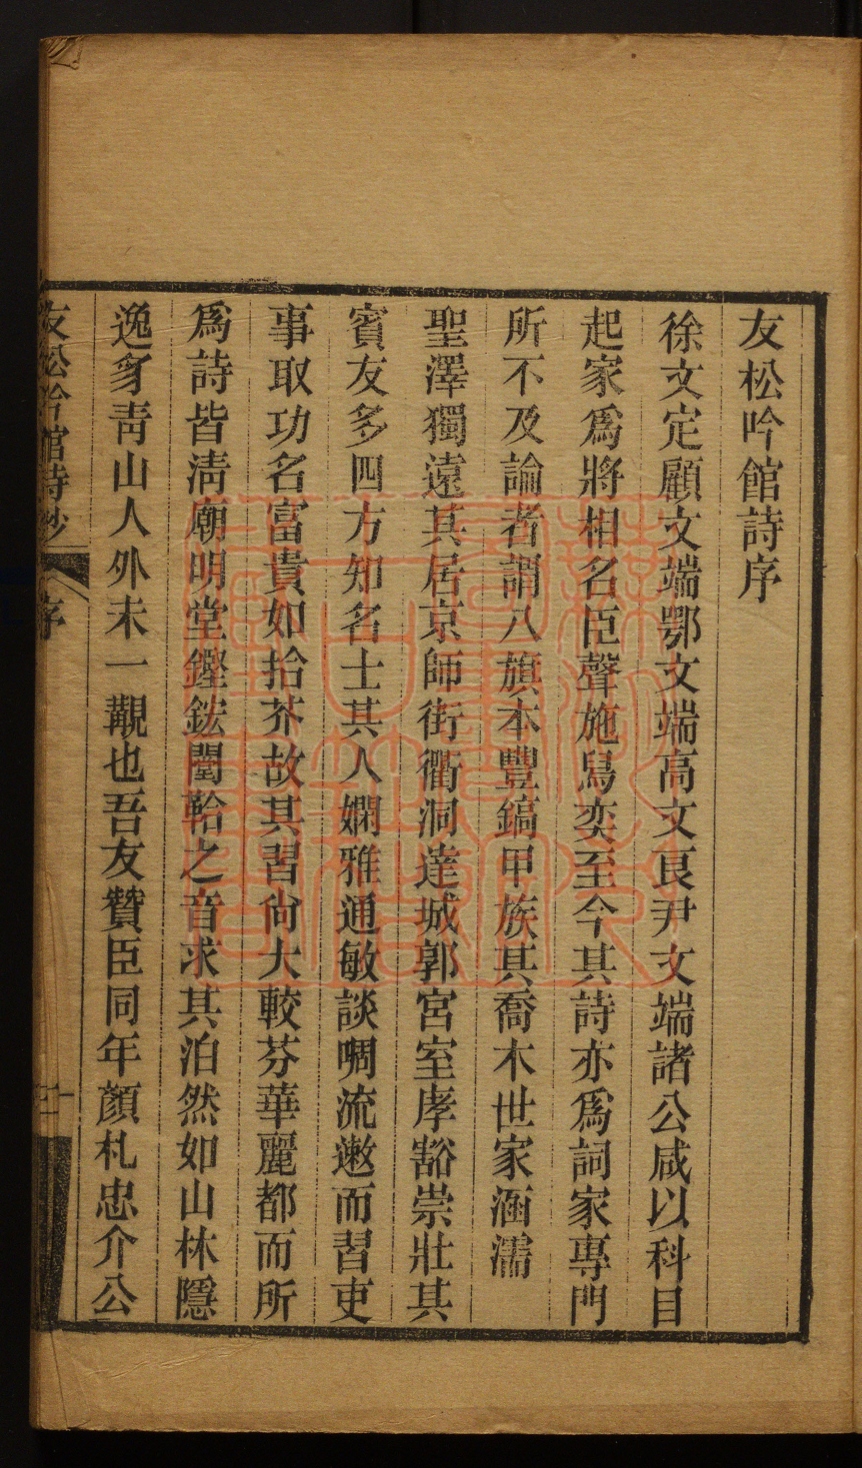 友松吟館詩序
徐文定顧文端鄂文端高文良尹文端諸公咸以科目
起家爲將相名臣聲施舃奕至今其詩亦爲詞家專門
所不及論者謂八旗本豐鎬甲族其喬木世家涵濡
聖澤獨遠其居京師街衢洞達城郭宮室庨豁崇壯其
賓友多四方知名士其人嫻雅通敏談啁流遬而習吏
事取功名富貴如拾芥故其習尙大較芬華麗都而所
爲詩皆淸廟明堂鏗鋐闛鞈之音求其泊然如山林隱
逸豸靑山人外未一覯也吾友贊臣同年顏札忠介公
友松吟館詩鈔 序 一